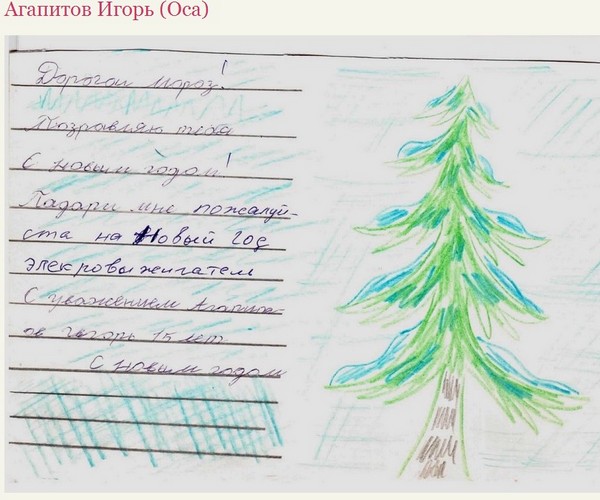 Агапитов Игорь (Оса)
Дорогой мороз!
Поздравляю тебя
С новым годом!
Падари мне пожалуй-
ста на Новый год
элекровыжигател
С уважением Агапит-
ов Игорь 15 лет
С новым годом